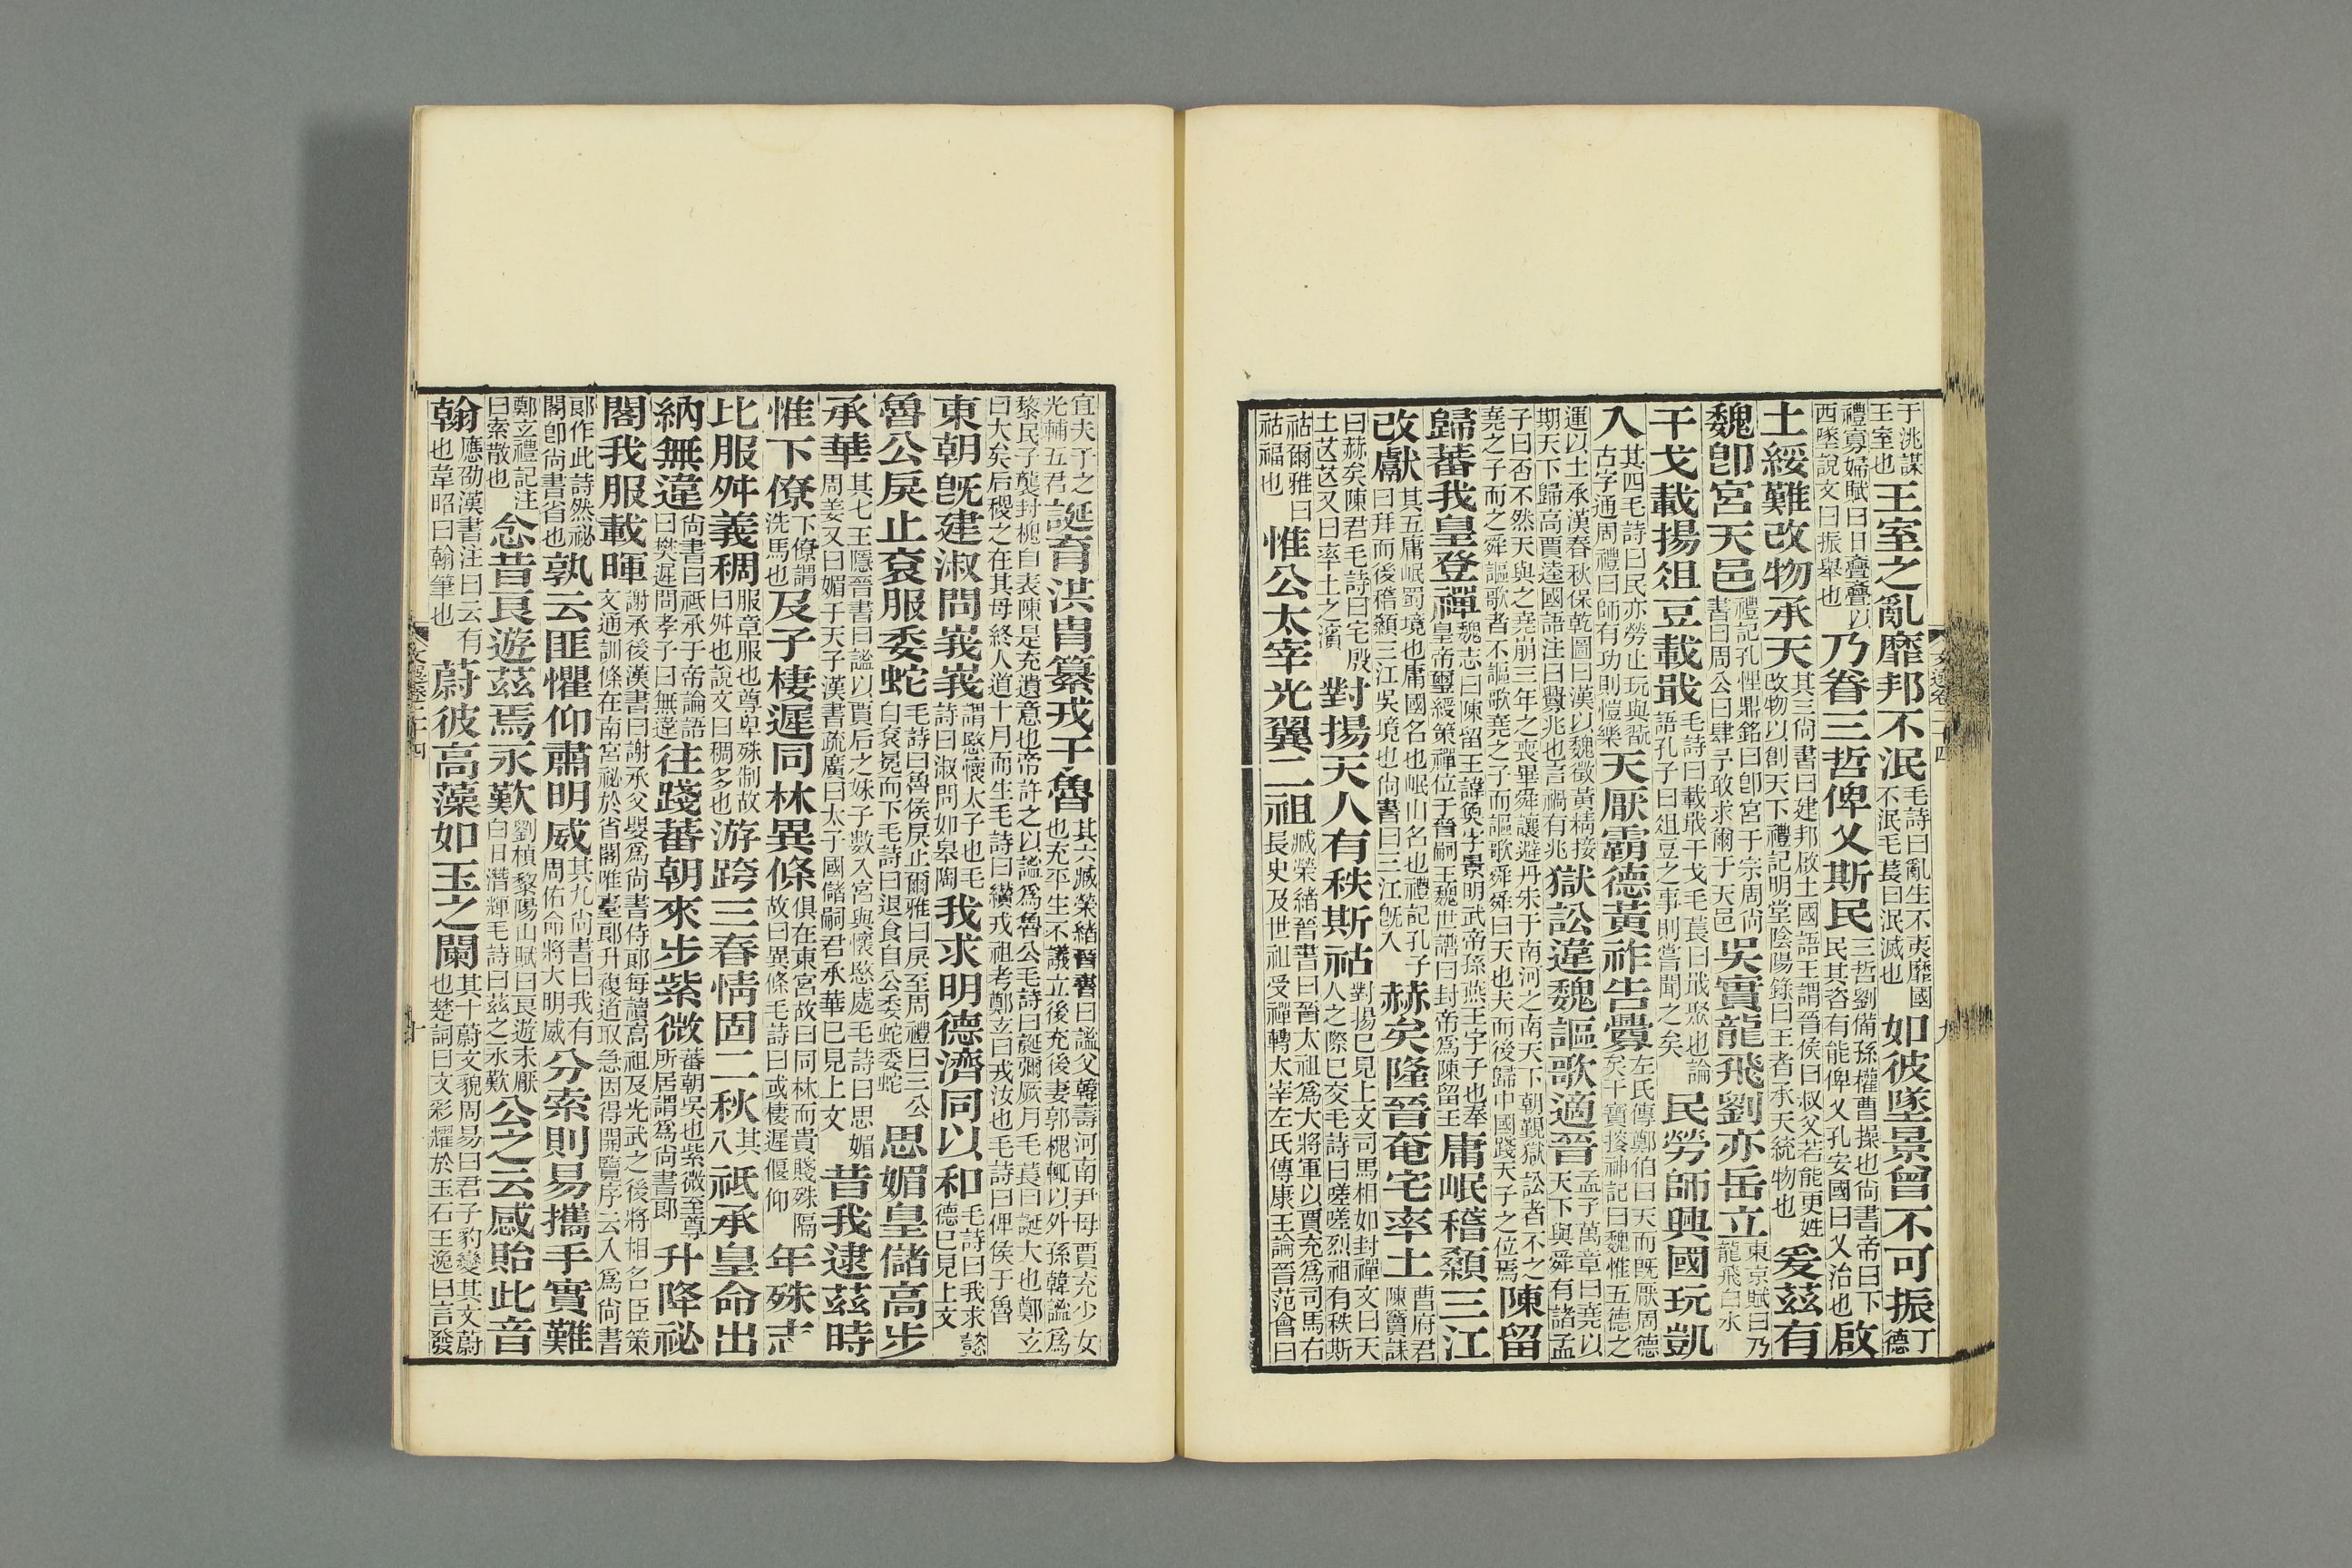 于洮謀王室也王室之亂靡邦不泯毛詩曰亂生不夷靡國不泯毛萇曰泯滅也如彼墜景曾不可振丁德
禮寡婦賦曰日亹亹以西墜說文曰振舉也乃眷三哲俾乂斯民三哲劉備孫權曹操也尚書帝曰下民其咨有能俾乂孔安國曰乂治也啟
土綏難改物承天其三尚書曰建邦啟土國語王謂晉侯曰叔父若能更姓改物以創天下禮記明堂陰陽錄曰王者承天統物也爰茲有
魏卽宮天邑禮記孔悝鼎銘曰卽宮于宗周尚書曰周公曰肆予敢求爾于天邑吳實龍飛劉亦岳立東京賦曰乃龍飛白水
干戈載揚俎豆載戢毛詩曰載戢干戈毛萇曰戢聚也論語孔子曰俎豆之事則嘗聞之矣民勞師興國玩凱
入其四毛詩曰民亦勞止玩與翫古字通周禮曰師有功則愷樂天厭霸德黃祚告釁左氏傳鄭伯曰天而旣厭周德矣干寶搜神記曰魏惟五德之
運以土承漢春秋保乾圖曰漢以魏徵黃精接期天下歸高賈逵國語注曰釁兆也言禍有兆獄訟違魏謳歌適晉孟子萬章曰堯以天下與舜有諸孟
子曰否不然天與之堯崩三年之喪畢舜讓避丹朱于南河之南天下朝覲獄訟者不之堯之子而之舜謳歌者不謳歌堯之子而謳歌舜舜曰天也夫而後歸中國踐天子之位焉陳留
歸蕃我皇登禪魏志曰陳留王諱奐字景明武帝孫燕王宇子也奉皇帝璽綬策禪位于晉嗣王魏世譜曰封帝爲陳留王庸岷稽顙三江
改獻其五庸岷蜀境也庸國名也岷山名也禮記孔子曰拜而後稽顙三江吳境也尚書曰三江旣入赫矣隆晉奄宅率土曹府君陳竇誄
曰赫矣陳君毛詩曰宅殷土芒芒又曰率土之濱對揚天人有秩斯祜對揚已見上文司馬相如封禪文曰天人之際已交毛詩曰嗟嗟烈祖有秩斯
祜爾雅曰祜福也惟公太宰光翼二祖臧榮緒晉書曰晉太祖爲大將軍以賈充爲司馬右長史及世祖受禪轉太宰左氏傳康王論晉范會曰
宜夫子之光輔五君誕育洪胄纂戎于魯其六臧榮緒晉書曰謐父韓壽河南尹母賈充少女也充平生不議立後充後妻郭槐輒以外孫韓謐爲
黎民子襲封槐自表陳是充遺意也帝許之以謐爲魯公毛詩曰誕彌厥月毛萇曰誕大也鄭玄曰大矣后稷之在其母終人道十月而生毛詩曰纘戎祖考鄭玄曰戎汝也毛詩曰俾侯于魯
東朝旣建淑問峩峩謂愍懷太子也毛詩曰淑問如皋陶我求明德濟同以和毛詩曰我求懿德已見上文
魯公戾止衮服委蛇毛詩曰魯侯戾止爾雅曰戾至周禮曰三公自衮冕而下毛詩曰退食自公委蛇委蛇思媚皇儲高步
承華其七王隱晉書曰謐以賈后之妹子數入宮與懷愍處毛詩曰思媚周姜又曰媚于天子漢書疏廣曰太子國儲嗣君承華已見上文昔我逮茲時
惟下僚下僚謂洗馬也及子棲遲同林異條俱在東宮故曰同林而貴賤殊隔故曰異條毛詩曰或棲遲偃仰年殊志
比服舛義稠服章服也尊卑殊制故曰舛也說文曰稠多也游跨三春情固二秋其八祗承皇命出
納無違尚書曰祗承于帝論語曰樊遲問孝子曰無違往踐蕃朝來步紫微蕃朝吳也紫微至尊所居謂爲尚書郎升降祕
閣我服載暉謝承後漢書曰謝承父嬰爲尚書侍郎每讀高祖及光武之後將相名臣策文通訓條在南宮祕於省閣唯臺郎升複道取急因得開覽序云入爲尚書
郎作此詩然祕閣卽尚書省也孰云匪懼仰肅明威其九尚書曰我有周佑命將大明威分索則易攜手實難
鄭玄禮記注曰索散也念昔良遊茲焉永歎劉楨黎陽山賦曰良遊未厭白日潛輝毛詩曰茲之永歎公之云感貽此音
翰應劭漢書注曰云有也韋昭曰翰筆也蔚彼高藻如玉之闌其十蔚文貌周易曰君子豹變其文蔚也楚詞曰文彩耀於玉石王逸曰言發